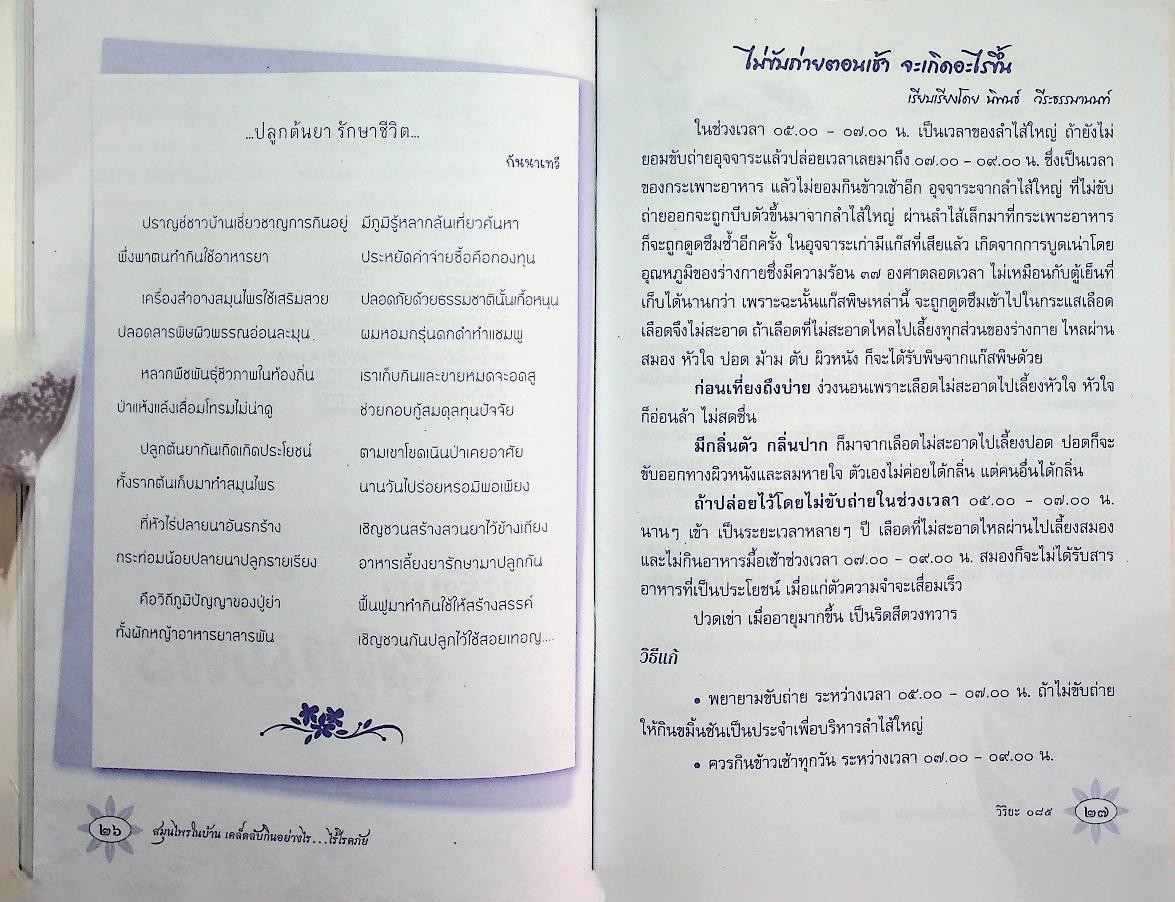 ...ปลูกต้นยา รักษาชีวิต...
กันนาเทวี
ปราญช์ชาวบ้านเชี่ยวชาญการกินอยู่ มีภูมิรู้หลากล้นเที่ยวค้นหา
พึ่งพาตนทำกินใช้อาหารยา ประหยัดค่าจ่ายซื้อคือกองทุน
เครื่องสำอางสมุนไพรใช้เสริมสวย ปลอดภัยด้วยธรรมชาตินั้นเกื้อหนุน
ปลอดสารพิษผิวพรรณอ่อนละมุน ผมหอมกรุ่นดกดำทำแชมพู
หลากพืชพันธุ์ชีวภาพในท้องถิ่น เราเก็บกินและขายหมดจะอดสู
ป่าแห้งแล้งเสื่อมโทรมไม่น่าดู ช่วยกอบกู้สมดุลทุนปัจจัย
ปลูกต้นยากันเกิดเกิดประโยชน์ ตามเขาโขดเนินป่าเคยอาศัย
ทั้งรากต้นเก็บมาทำสมุนไพร นานวันไปร่อยหรอมิพอเพียง
ที่หัวไร่ปลายนาอันรกร้าง เชิญชวนสร้างสวนยาไว้ข้างเถียง
กระท่อมน้อยปลายนาปลูกรายเรียง อาหารเลี้ยงยารักษามาปลูกกัน
คือวิถีภูมิปัญญาของปู่ย่า ฟื้นฟูมาทำกินใช้ให้สร้างสรรค์
ทั้งผักหญ้าอาหารยาสารพัน เชิญชวนกันปลูกไว้ใช้สอยเทอญ....
๒๖ สมุนไพรในบ้าน เคล็ดลับกินอย่างไร...ไร้โรคภัย
ไม่ขับถ่ายตอนเช้า จะเกิดอะไรขึ้น
เรียบเรียงโดย นิพนธ์ วีระธรรมานนท์
ในช่วงเวลา ๐๕.๐๐ - ๐๗.๐๐ น. เป็นเวลาของลำไส้ใหญ่ ถ้ายังไม่
ยอมขับถ่ายอุจจาระแล้วปล่อยเวลาเลยมาถึง ๐๗.๐๐ - ๐๙.๐๐ น. ซึ่งเป็นเวลา
ของกระเพาะอาหาร แล้วไม่ยอมกินข้าวเช้าอีก อุจจาระจากลำไส้ใหญ่ ที่ไม่ขับ
ถ่ายออกจะถูกบีบตัวขึ้นมาจากลำไส้ใหญ่ ผ่านลำไส้เล็กมาที่กระเพาะอาหาร
ก็จะถูกดูดซึมซ้ำอีกครั้ง ในอุจจาระเก่ามีแก๊สที่เสียแล้ว เกิดจากการบูดเน่าโดย
อุณหภูมิของร่างกายซึ่งมีความร้อน ๓๗ องศาตลอดเวลา ไม่เหมือนกับตู้เย็นที่
เก็บได้นานกว่า เพราะฉะนั้นแก๊สพิษเหล่านี้ จะถูกดูดซึมเข้าไปในกระแสเลือด
เลือดจึงไม่สะอาด ถ้าเลือดที่ไม่สะอาดไหลไปเลี้ยงทุกส่วนของร่างกาย ไหลผ่าน
สมอง หัวใจ ปอด ม้าม ตับ ผิวหนัง ก็จะได้รับพิษจากแก๊สพิษด้วย
ก่อนเที่ยงถึงบ่าย ง่วงนอนเพราะเลือดไม่สะอาดไปเลี้ยงหัวใจ หัวใจ
ก็อ่อนล้า ไม่สดชื่น
มีกลิ่นตัว กลิ่นปาก ก็มาจากเลือดไม่สะอาดไปเลี้ยงปอด ปอดก็จะ
ขับออกทางผิวหนังและลมหายใจ ตัวเองไม่ค่อยได้กลิ่น แต่คนอื่นได้กลิ่น
ถ้าปล่อยไว้โดยไม่ขับถ่ายในช่วงเวลา ๐๕.๐๐ - ๐๗.๐๐ น.
นานๆ เข้า เป็นระยะเวลาหลายๆ ปี เลือดที่ไม่สะอาดไหลผ่านไปเลี้ยงสมอง
และไม่กินอาหารมื้อเช้าช่วงเวลา ๐๗.๐๐ - ๐๙.๐๐ น. สมองก็จะไม่ได้รับสาร
อาหารที่เป็นประโยชน์ เมื่อแก่ตัวความจำจะเสื่อมเร็ว
ปวดเข่า เมื่ออายุมากขึ้น เป็นริดสีดวงทวาร
วิธีแก้
• พยายามขับถ่าย ระหว่างเวลา ๐๕.๐๐ - ๐๗.๐๐ น. ถ้าไม่ขับถ่าย
ให้กินขมิ้นชันเป็นประจำเพื่อบริหารลำไส้ใหญ่
• ควรกินข้าวเช้าทุกวัน ระหว่างเวลา ๐๗.๐๐ - ๐๙.๐๐ น.
วิริยะ ๐๘๕ ๒๗